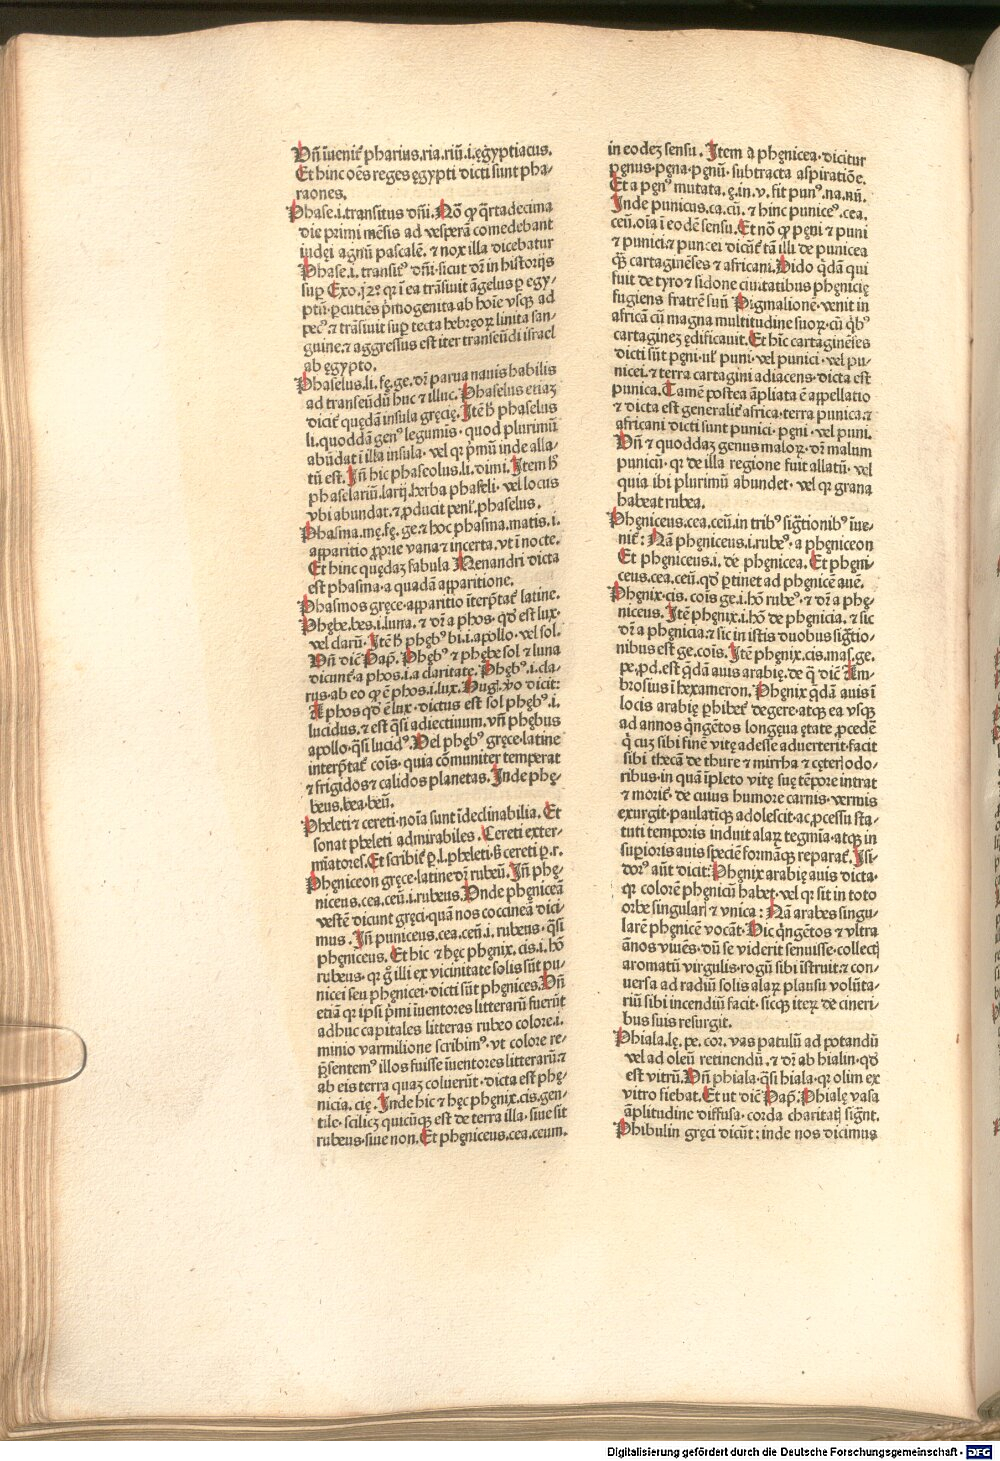 Vñ iuenit᷑ pharius.ria.riũ.i.ęgyptiacus.
Et hinc oẽs reges ęgypti dicti sunt pha-
raones.
Phase.i.transitus dñi.Nõ ꝙ q̃rtadecima
die primi mẽsis ad vesperã comedebant
iudęi agnũ pascalẽ. ⁊ nox illa dicebatur
Phase.i.transitꝰ dñi.sicut dr̃ in historijs
sup Exo.
ptũ.ꝑcutiẽs p̃mogenita ab hoie vsqꝫ ad
pecꝰ.⁊ trãsiuit sup tecta hebręoꝝ linita san-
guine.⁊ aggressus est iter transeũdi israel
ab ęgypto.
Phaselus.li.fę.ge.dr̃ parua nauis habilis
ad transeũdũ huc ⁊ illuc.Phaselus etiaꝫ
dicit᷑ quędã insula gręcię.Itẽ h̃ phaselus
li.quoddã genꝰ legumis.quod plurimũ
abũdat i illa insula.vel qꝛ p̃mũ inde alla-
tũ est.Jñ hic phaseolus.li.dimi.Item h̃
phaselariũ.larij.herba phaseli.vel locus
vbi abundat.⁊ ꝓducit penľ.phaselus.
Phasma.mę.fę.ge.⁊ hoc phasma.matis.i.
apparitio ꝓprie vana ⁊ incerta.vt ĩ nocte.
Et hinc quędaꝫ fabula Menandri dicta
est phasma.a quadã apparitione.
Phasmos gręce.apparitio ĩterp̃tat᷑ latine.
Phębe.bes.i.luna.⁊ dr̃ a phos.qď est lux.
vel darũ.Itẽ h̃ phębꝰ bi.i.apollo.vel sol.
Vñ dic̃ Pap̃.Phębꝰ ⁊ phębe sol ⁊ luna
dicunt᷑ a phos.i.a claritate.Phębꝰ.i.cla-
rus.ab eo ꝙ ẽ phos.i.lux.Hug̃.ṽo dicit:
A phos qď ẽ lux.dictus est sol phębꝰ.i.
lucidus.⁊ est q̃si adiectiuum.vñ phębus
apollo.q̃si lucidꝰ.Vel phębꝰ gręce.latine
interp̃tat᷑ cois.quia cõmuniter temperat
⁊ frigidos ⁊ calidos planetas.Inde phę-
beus.bea.beũ.
Pheleti ⁊ cereti.noĩa sunt ĩdeclinabilia.Et
sonat pheleti admirabiles.Cereti exter-
mĩatores.Et scribit᷑ ꝑ.l.pheleti.ß cereti ꝑ.r.
Phęniceon gręce.latine dr̃ rubeũ.Jñ phę-
niceus.cea.ceũ.i.rubeus.Vnde phęniceã
vestẽ dicunt gręci.quã nos coccineã dici-
mus.Jñ puniceus.cea.ceũ.i.rubeus.q̃si
phęniceus.Et hic ⁊ hęc phęnix.cis.i.hõ
rubeus.qꝛ g̃ illi ex vicinitate solis sũt pu-
nicei seu phęnicei.dicti sũt phęnices.Vñ
etiã qꝛ ipsi p̃mi iuentores litterarũ fuerũt
adhuc capitales litteras rubeo colore.i.
minio varmilione scribimꝰ.vt colore re-
p̃sentemꝰ illos fuisse iuentores litterarũ.⁊
ab eis terra quaꝫ coluerũt.dicta est phę-
nicia.cię.Inde hic ⁊ hęc phęnix.cis.gen-
tile.scilicꝫ quicũqꝫ est de terra illa.siue sit
rubeus.siue non.Et phęniceus.cea.ceum.
in eodeꝫ sensu.Item a phęnicea.dicitur
pęnus.pęna.pęnũ.subtracta aspiratiõe.
Et a pęnꝰ mutata.ę.in.v.fit punꝰ.na.nũ.
Inde punicus.ca.cũ.⁊ hinc puniceꝰ.cea.
ceũ.oĩa ĩ eodẽ sensu.Et nõ ꝙ pęni ⁊ puni
⁊ punici.⁊ puncei dicũt᷑ tã illi de punicea
q̃ꝫ cartaginẽses ⁊ africani.Dido q̃dã qui
fuit de tyro ⁊ sidone ciuitatibus phęnicię
fugiens fratrẽ suũ Pigmalionẽ.venit in
africã cũ magna multitudine suoꝝ.cũ q̃bꝰ
cartagineꝫ ędificauit.Et hĩc cartaginẽses
dicti sũt pęni.uľ puni.vel punici.vel pu-
nicei.⁊ terra cartagini adiacens.dicta est
punica.Tamẽ postea ãpliata ẽ appellatio
⁊ dicta est generalit᷑ africa.terra punica.⁊
africani dicti sunt punici.pęni.vel puni.
Vñ ⁊ quoddaꝫ genus maloꝝ.dr̃ malum
punicũ.qꝛ de illa regione fuit allatũ.vel
quia ibi plurimũ abundet.vel qꝛ grana
habeat rubea.
Phęniceus.cea.ceũ.in tribꝰ sig̃tionibꝰ ĩue-
nit᷑: Nã phęniceus.i.rubeꝰ.a phęniceon
Et phęniceus.i.de phęnicea.Et phęni-
ceus.cea.ceũ.qď ꝑtinet ad phęnicẽ auẽ.
Phęnix.cis.cois ge.i.hõ rubeꝰ.⁊ dr̃ a phę-
niceus.Itẽ phęnix.i.hõ de phęnicia.⁊ sic
dr̃ a phęnicia.⁊ sic in istis duobus sig̃tio-
nibus est ge.cois.Itẽ phęnix.cis.mas.ge.
pe.ꝓd.est q̃dã auis arabię.de q̃ dic̃ Am-
brosius ĩ hexameron.Phęnix q̃dã auis ĩ
locis arabię ꝑhibet᷑ degere.atqꝫ ea vsqꝫ
ad annos q̃ngẽtos longęua ętate ꝓcedẽ
q̃ cuꝫ sibi finẽ vitę adesse aduerterit.facit
sibi thecã de thure ⁊ mirrha ⁊ cęteris odo-
ribus.in quã ĩpleto vitę suę tẽpore intrat
⁊ morit᷑.de cuius humore carnis.vermis
exurgit.paulatiqꝫ adolescit.ac ꝓcessu sta-
tuti temporis induit alaꝝ tegmĩa.atqꝫ in
supioris auis speciẽ formãqꝫ reparat᷑.Isi-
dorꝰ aũt dicit:Phęnix arabię auis dicta.
qꝛ colorẽ phęnicũ habet.vel qꝛ sit in toto
orbe singularis ⁊ vnica: Nã arabes singu-
larẽ phęnicẽ vocãt.Hic q̃ngẽtos ⁊ vltra
ãnos viuẽs.dũ se viderit senuisse.collectis
aromatũ virgulis.rogũ sibi ĩstruit.⁊ con-
uersa ad radiũ solis alaꝝ plausu volũta-
riũ sibi incendiũ facit.sicqꝫ iteꝝ de cineri-
bus suis resurgit.
Phiala.lę.pe.cor.vas patulũ ad potandũ
vel ad oleũ retinendũ.⁊ dr̃ ab hialin.qď
est vitrũ.Vñ phiala.q̃si hiala.qꝛ olim ex
vitro fiebat.Et ut dic̃ Pap̃.Phialę vasa
ãplitudine diffusa.corda charitatis sig̃nt.
Phibulin gręci dicũt:inde nos dicimus
Digitalisierung gefördert durch die Deutsche Forschungsgemeinschaft - DFG